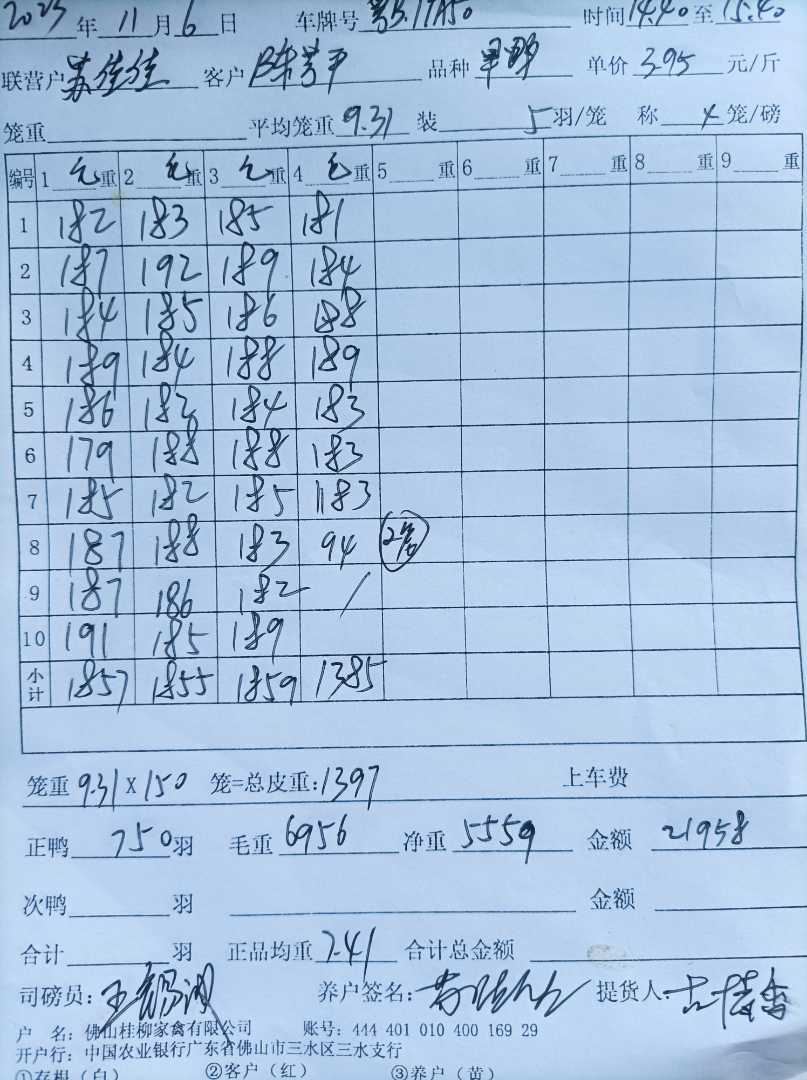 2023年 11月 6日 车牌号 粤B.17A50 时间 14.40至 15.40
联营户 苏佳佳 客户 陈 平 品种 单价 3.95 元/斤
笼重 平均笼重 9.31 装 5 羽/笼 称 4 笼/磅
编号 1 毛重 2 毛重 3 毛重 4 毛重 5 重 6 重 7 重 8 重 9 重
1 182 183 185 181
2 187 192 189 184
3 184 185 186 188
4 189 184 188 189
5 186 182 184 183
6 179 188 188 183
7 185 182 185 183
8 187 188 183 94 2笼
9 187 186 182 /
10 191 185 189
小计 1857 1855 1859 1385
笼重 9.31 X 150 笼=总皮重:1397 上车费
正鸭 750 羽 毛重 6956 净重 5559 金额 21958
次鸭 羽 金额
合计 羽 正品均重 7.41 合计总金额
司磅员: 王 养户签名: 提货人:
户 名: 佛山桂柳家禽有限公司 账号: 444 401 010 400 169 29
开户行: 中国农业银行广东省佛山市三水区三水支行
①存根(白) ②客户(红) ③养户(黄)